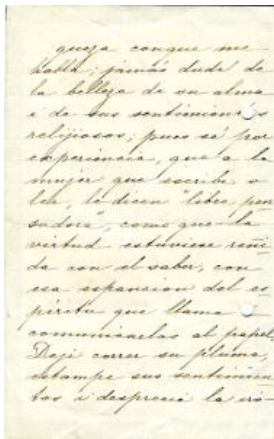 queza conque me
habla; jamás dudé de
la belleza de su alma
i de sus sentimientos
relijiosos; pues sé por
esperiencia, que a la
mujer que escribe o
lee, le dicen "libre pen
sadora", como que la
virtud estuviese reñi
da con el saber, con
esa espansion del es
píritu que llama a
comunicarlas al papel.
Deje correr su pluma,
estampe sus sentimien
tos i desprecie la iro-